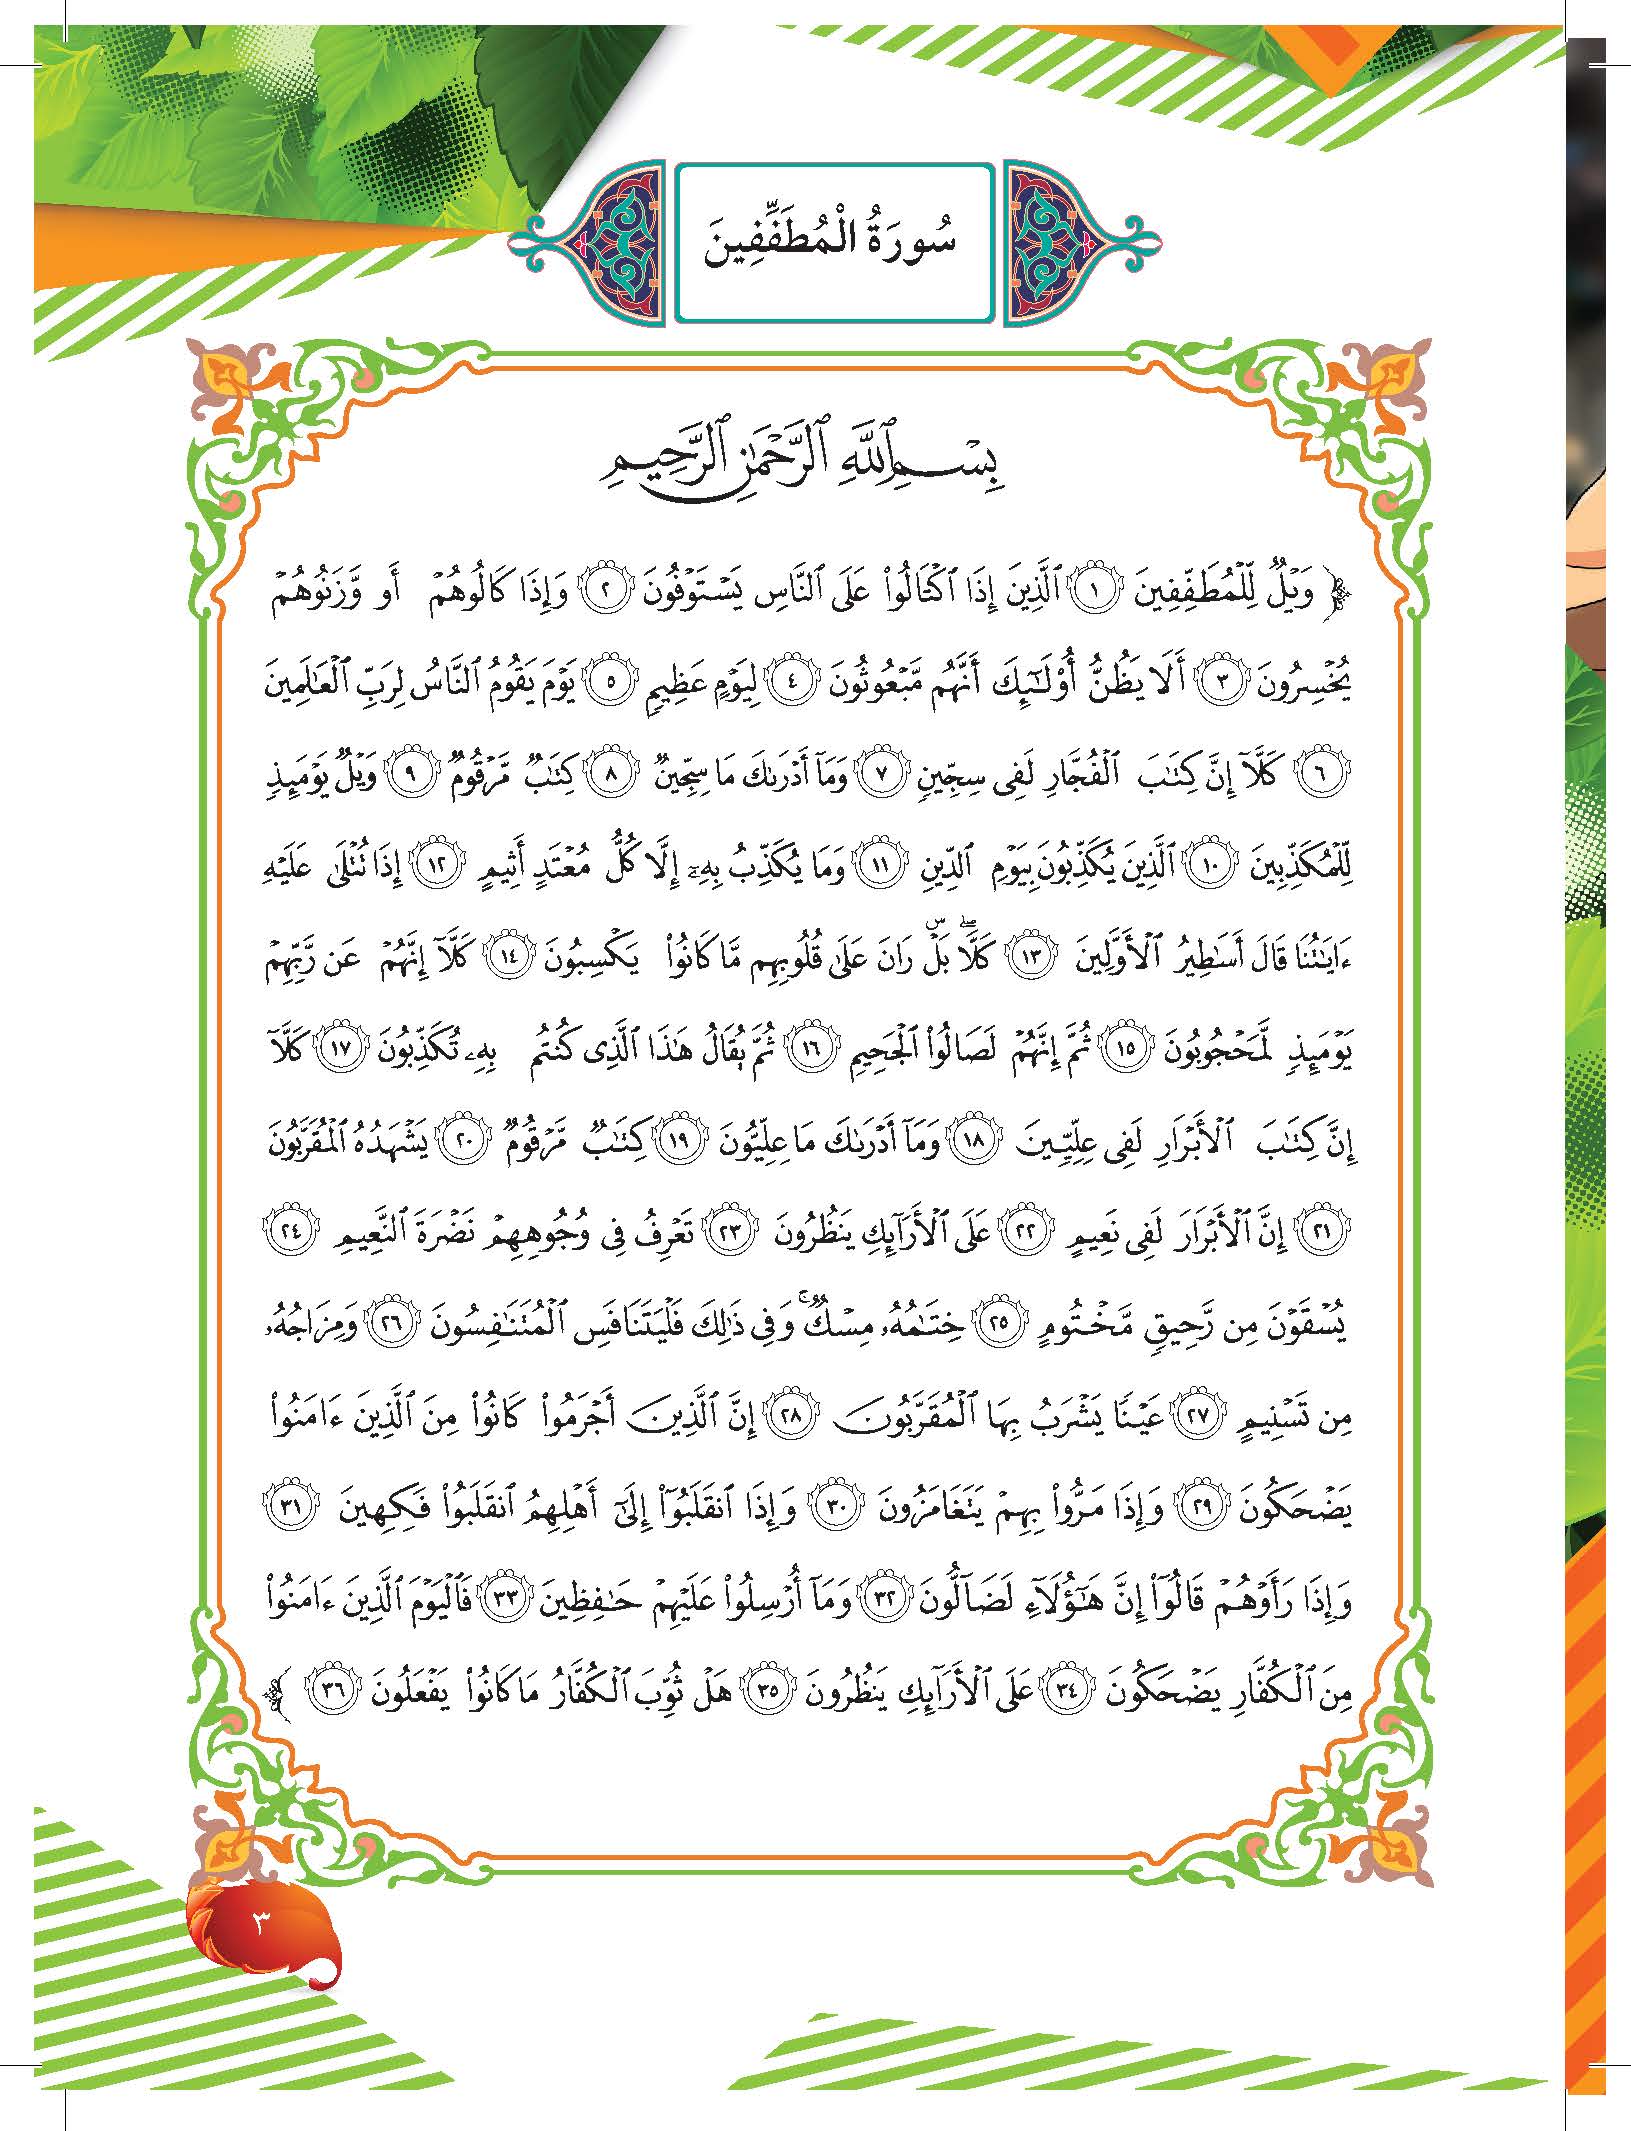 سُورَةُ الْمُطَفِّفِينَ
بِسْمِ ٱللَّهِ ٱلرَّحْمَٰنِ ٱلرَّحِيمِ
﴿ وَيْلٌ لِّلْمُطَفِّفِينَ ١ ٱلَّذِينَ إِذَا ٱكْتَالُوا۟ عَلَى ٱلنَّاسِ يَسْتَوْفُونَ ٢ وَإِذَا كَالُوهُمْ أَو وَّزَنُوهُمْ
يُخْسِرُونَ ٣ أَلَا يَظُنُّ أُو۟لَٰٓئِكَ أَنَّهُم مَّبْعُوثُونَ ٤ لِيَوْمٍ عَظِيمٍ ٥ يَوْمَ يَقُومُ ٱلنَّاسُ لِرَبِّ ٱلْعَٰلَمِينَ
٦ كَلَّآ إِنَّ كِتَٰبَ ٱلْفُجَّارِ لَفِى سِجِّينٍ ٧ وَمَآ أَدْرَىٰكَ مَا سِجِّينٌ ٨ كِتَٰبٌ مَّرْقُومٌ ٩ وَيْلٌ يَوْمَئِذٍ
لِّلْمُكَذِّبِينَ ١٠ ٱلَّذِينَ يُكَذِّبُونَ بِيَوْمِ ٱلدِّينِ ١١ وَمَا يُكَذِّبُ بِهِۦٓ إِلَّا كُلُّ مُعْتَدٍ أَثِيمٍ ١٢ إِذَا تُتْلَىٰ عَلَيْهِ
ءَايَٰتُنَا قَالَ أَسَٰطِيرُ ٱلْأَوَّلِينَ ١٣ كَلَّا ۖ بَلْ ۜ رَانَ عَلَىٰ قُلُوبِهِم مَّا كَانُوا۟ يَكْسِبُونَ ١٤ كَلَّآ إِنَّهُمْ عَن رَّبِّهِمْ
يَوْمَئِذٍ لَّمَحْجُوبُونَ ١٥ ثُمَّ إِنَّهُمْ لَصَالُوا۟ ٱلْجَحِيمِ ١٦ ثُمَّ يُقَالُ هَٰذَا ٱلَّذِى كُنتُم بِهِۦ تُكَذِّبُونَ ١٧ كَلَّآ
إِنَّ كِتَٰبَ ٱلْأَبْرَارِ لَفِى عِلِّيِّينَ ١٨ وَمَآ أَدْرَىٰكَ مَا عِلِّيُّونَ ١٩ كِتَٰبٌ مَّرْقُومٌ ٢٠ يَشْهَدُهُ ٱلْمُقَرَّبُونَ
٢١ إِنَّ ٱلْأَبْرَارَ لَفِى نَعِيمٍ ٢٢ عَلَى ٱلْأَرَآئِكِ يَنظُرُونَ ٢٣ تَعْرِفُ فِى وُجُوهِهِمْ نَضْرَةَ ٱلنَّعِيمِ ٢٤
يُسْقَوْنَ مِن رَّحِيقٍ مَّخْتُومٍ ٢٥ خِتَٰمُهُۥ مِسْكٌ ۚ وَفِى ذَٰلِكَ فَلْيَتَنَافَسِ ٱلْمُتَنَٰفِسُونَ ٢٦ وَمِزَاجُهُۥ
مِن تَسْنِيمٍ ٢٧ عَيْنًا يَشْرَبُ بِهَا ٱلْمُقَرَّبُونَ ٢٨ إِنَّ ٱلَّذِينَ أَجْرَمُوا۟ كَانُوا۟ مِنَ ٱلَّذِينَ ءَامَنُوا۟
يَضْحَكُونَ ٢٩ وَإِذَا مَرُّوا۟ بِهِمْ يَتَغَامَزُونَ ٣٠ وَإِذَا ٱنقَلَبُوٓا۟ إِلَىٰٓ أَهْلِهِمُ ٱنقَلَبُوا۟ فَكِهِينَ ٣١
وَإِذَا رَأَوْهُمْ قَالُوٓا۟ إِنَّ هَٰٓؤُلَآءِ لَضَآلُّونَ ٣٢ وَمَآ أُرْسِلُوا۟ عَلَيْهِمْ حَٰفِظِينَ ٣٣ فَٱلْيَوْمَ ٱلَّذِينَ ءَامَنُوا۟
مِنَ ٱلْكُفَّارِ يَضْحَكُونَ ٣٤ عَلَى ٱلْأَرَآئِكِ يَنظُرُونَ ٣٥ هَلْ ثُوِّبَ ٱلْكُفَّارُ مَا كَانُوا۟ يَفْعَلُونَ ٣٦ ﴾
٣